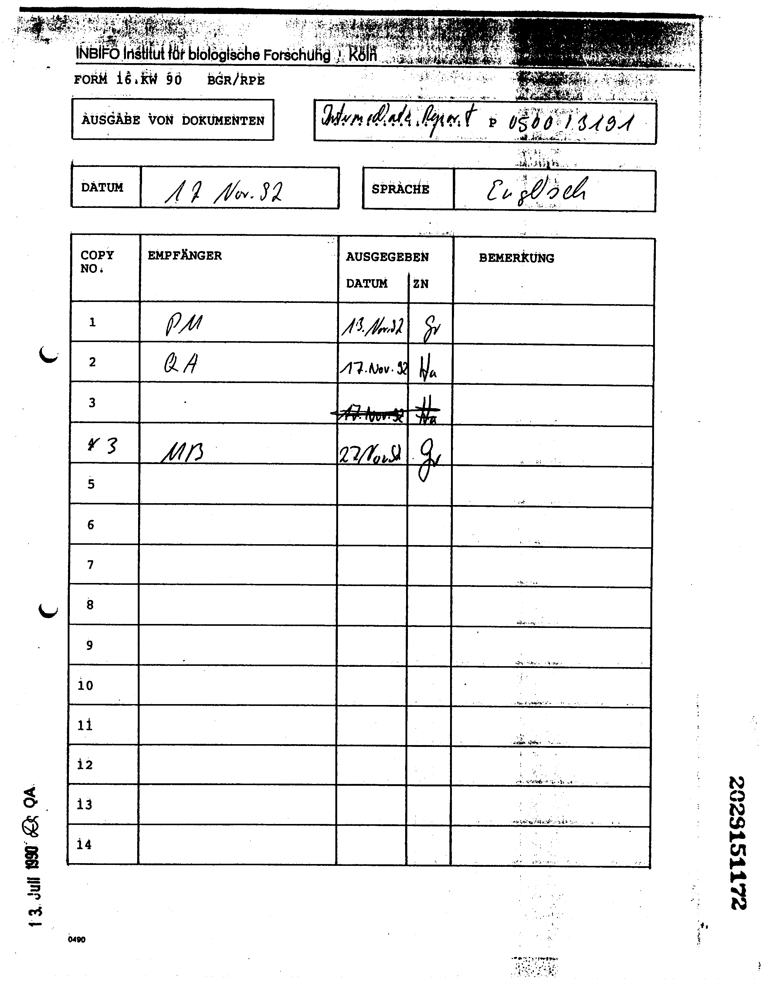 INBIFO Institut für biologische Forschung · Köln
FORM 16.KW 90 BGR/RPE
AUSGABE VON DOKUMENTEN
Intermediate Report P 0500/3191
DATUM 17 Nov. 92
SPRACHE Englisch
COPY NO. EMPFÄNGER AUSGEGEBEN BEMERKUNG
DATUM ZN
1 PM 13. Nov. 92 Gr
2 QA 17. Nov. 92 Ha
3 17. Nov. 92 Ha
4 3 MB 27 Nov 92 Gr
5
6
7
8
9
10
11
12
13
14
0490
13. Juli 1990 QA
2029151172